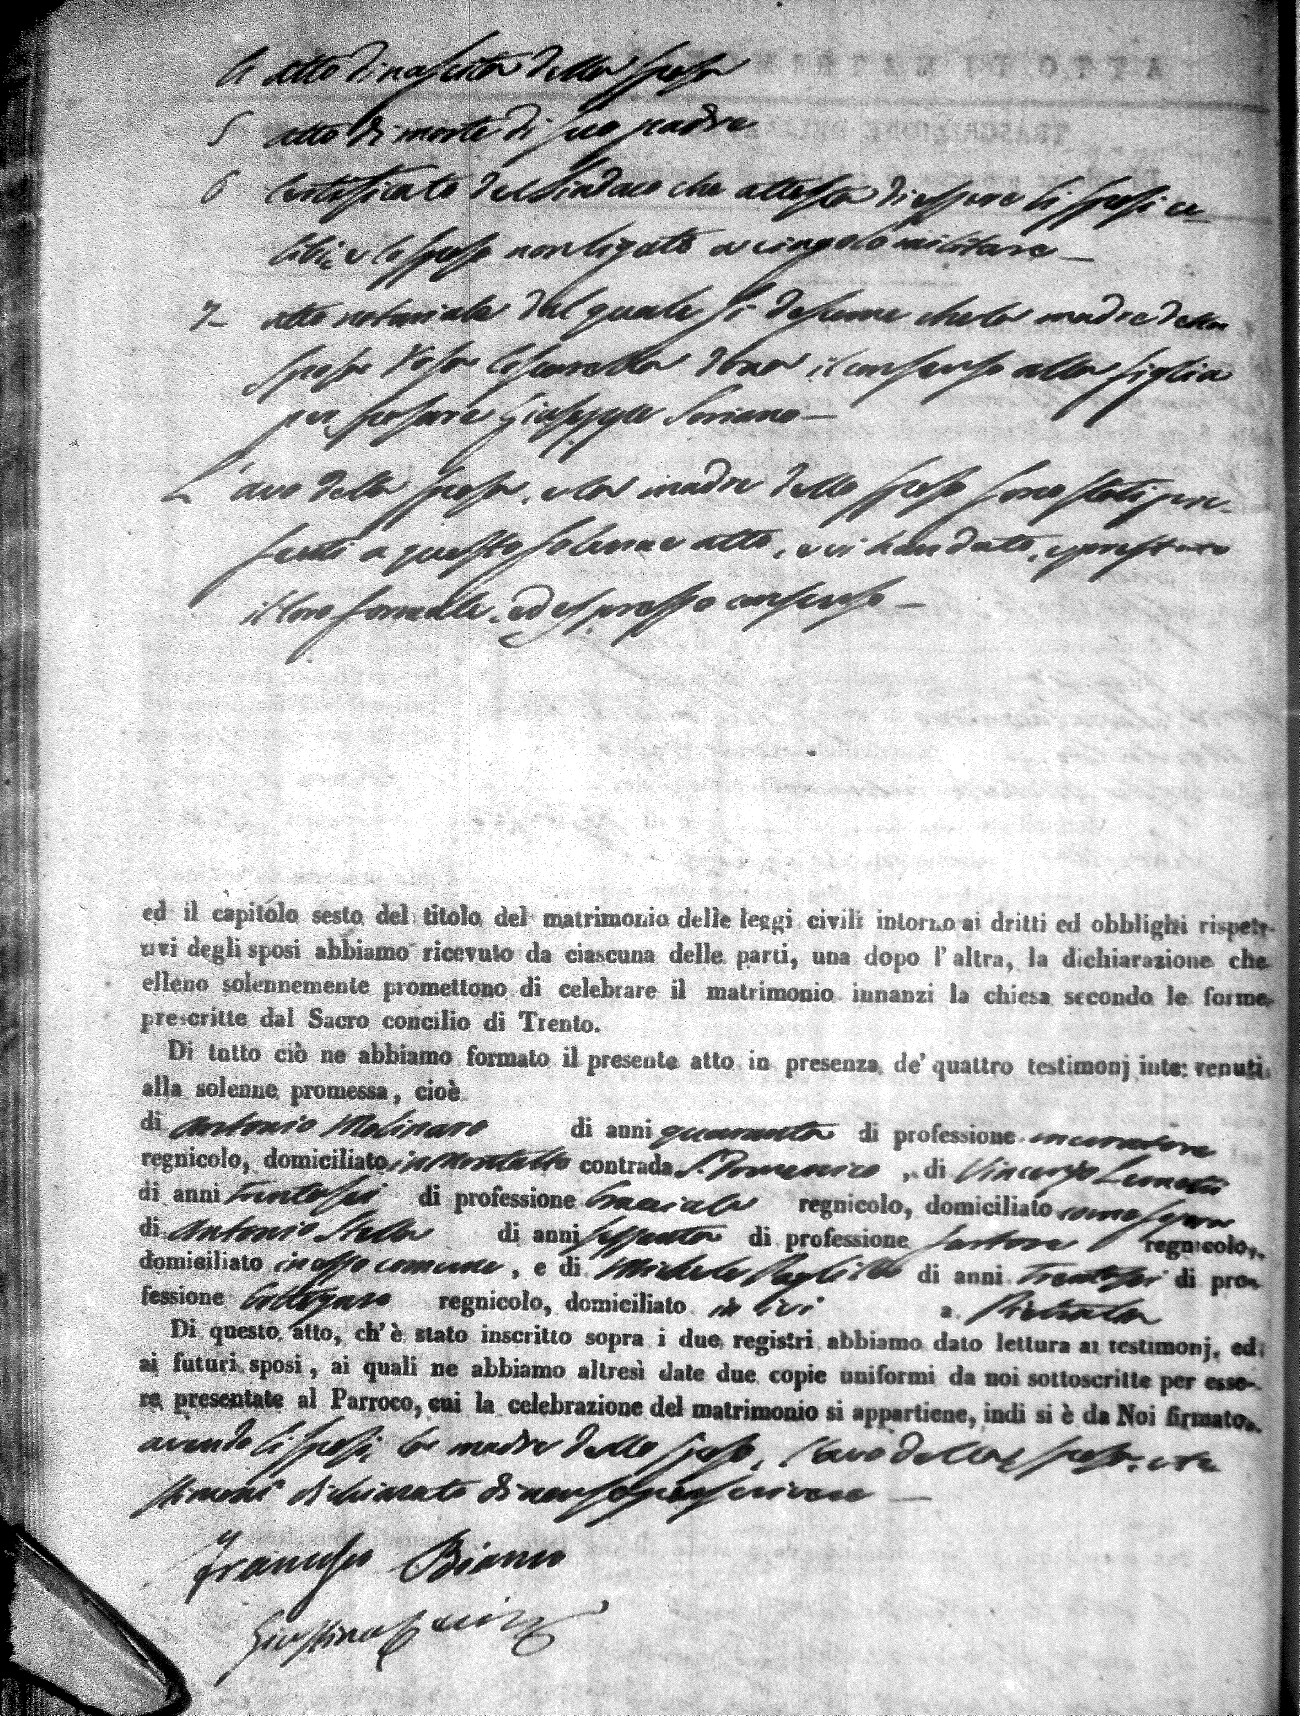 atto di nascita della sposa
5 atto di morte di suo padre
6 Certificato del Sindaco che attesta di essere li sposi ce-
libi, e lo sposo non ligato a cingolo militare —
7- atto notariale dal quale si desume che la madre della
sposa Rosa dona il consenso alla figlia
per sposare Giuseppe Soriano —
L'avo della sposa, e la madre dello sposo sono stati pre-
senti a questo solenne atto, e vi han dato, e prestato
il loro formale, ed espresso consenso —
ed il capitolo sesto del titolo del matrimonio delle leggi civili intorno ai dritti ed obblighi rispet-
tivi degli sposi abbiamo ricevuto da ciascuna delle parti, una dopo l'altra, la dichiarazione che
elleno solennemente promettono di celebrare il matrimonio innanzi la chiesa secondo le forme
prescritte dal Sacro concilio di Trento.
Di tutto ciò ne abbiamo formato il presente atto in presenza de' quattro testimonj intervenuti
alla solenne promessa, cioè
di Antonio Molinaro di anni quaranta di professione
regnicolo, domiciliato in Montalto contrada S. Domenico, di Vincenzo
di anni trentasei di professione bracciale regnicolo, domiciliato come sopra
di Antonio Stella di anni sessanta di professione sartore regnicolo,
domiciliato in esso comune, e di Michele di anni trentasei di pro-
fessione bottegaro regnicolo, domiciliato in ivi a
Di questo atto, ch'è stato inscritto sopra i due registri abbiamo dato lettura ai testimonj, ed
ai futuri sposi, ai quali ne abbiamo altresì date due copie uniformi da noi sottoscritte per esse-
re presentate al Parroco, cui la celebrazione del matrimonio si appartiene, indi si è da Noi firmato,
avendo li sposi, la madre dello sposo, l'avo della sposa, e te-
stimoni dichiarato di non saper scrivere —
Francesco Bianco